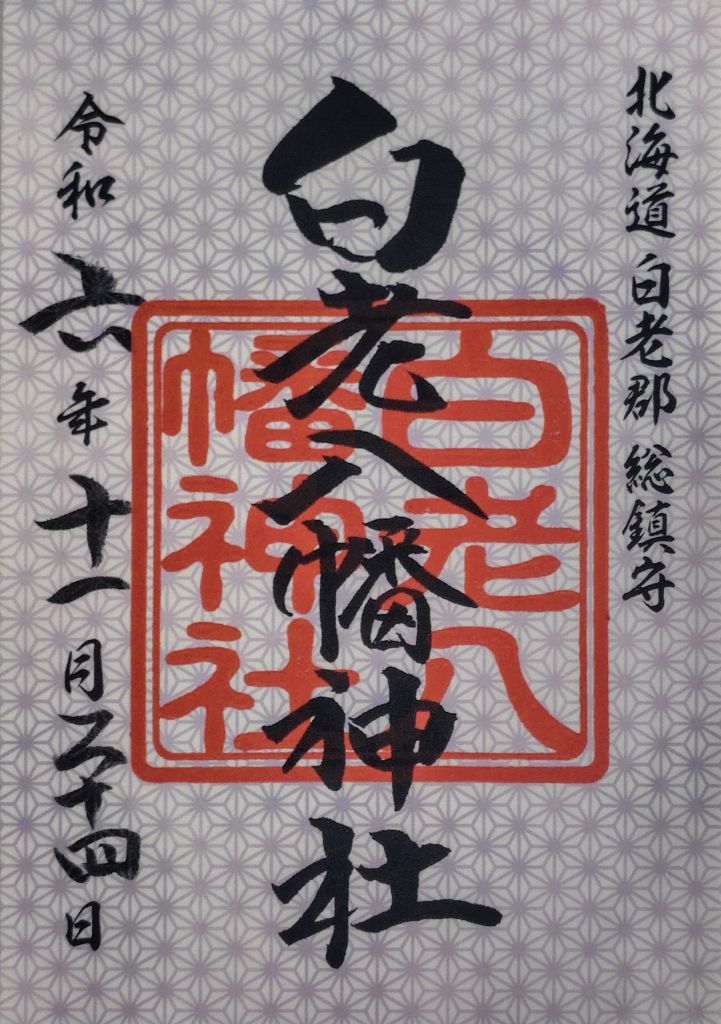 北海道 白老郡 総鎮守
白老八幡神社
白老八
幡神社
令和六年十一月二十四日